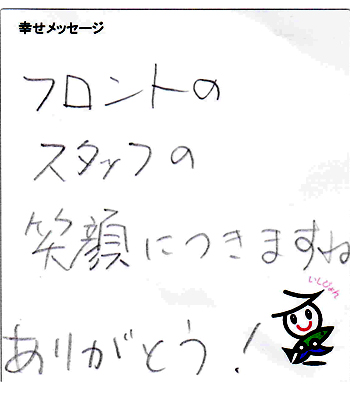 幸せメッセージ
フロントの
スタッフの
笑顔につきますね
いしぴょん
ありがとう！